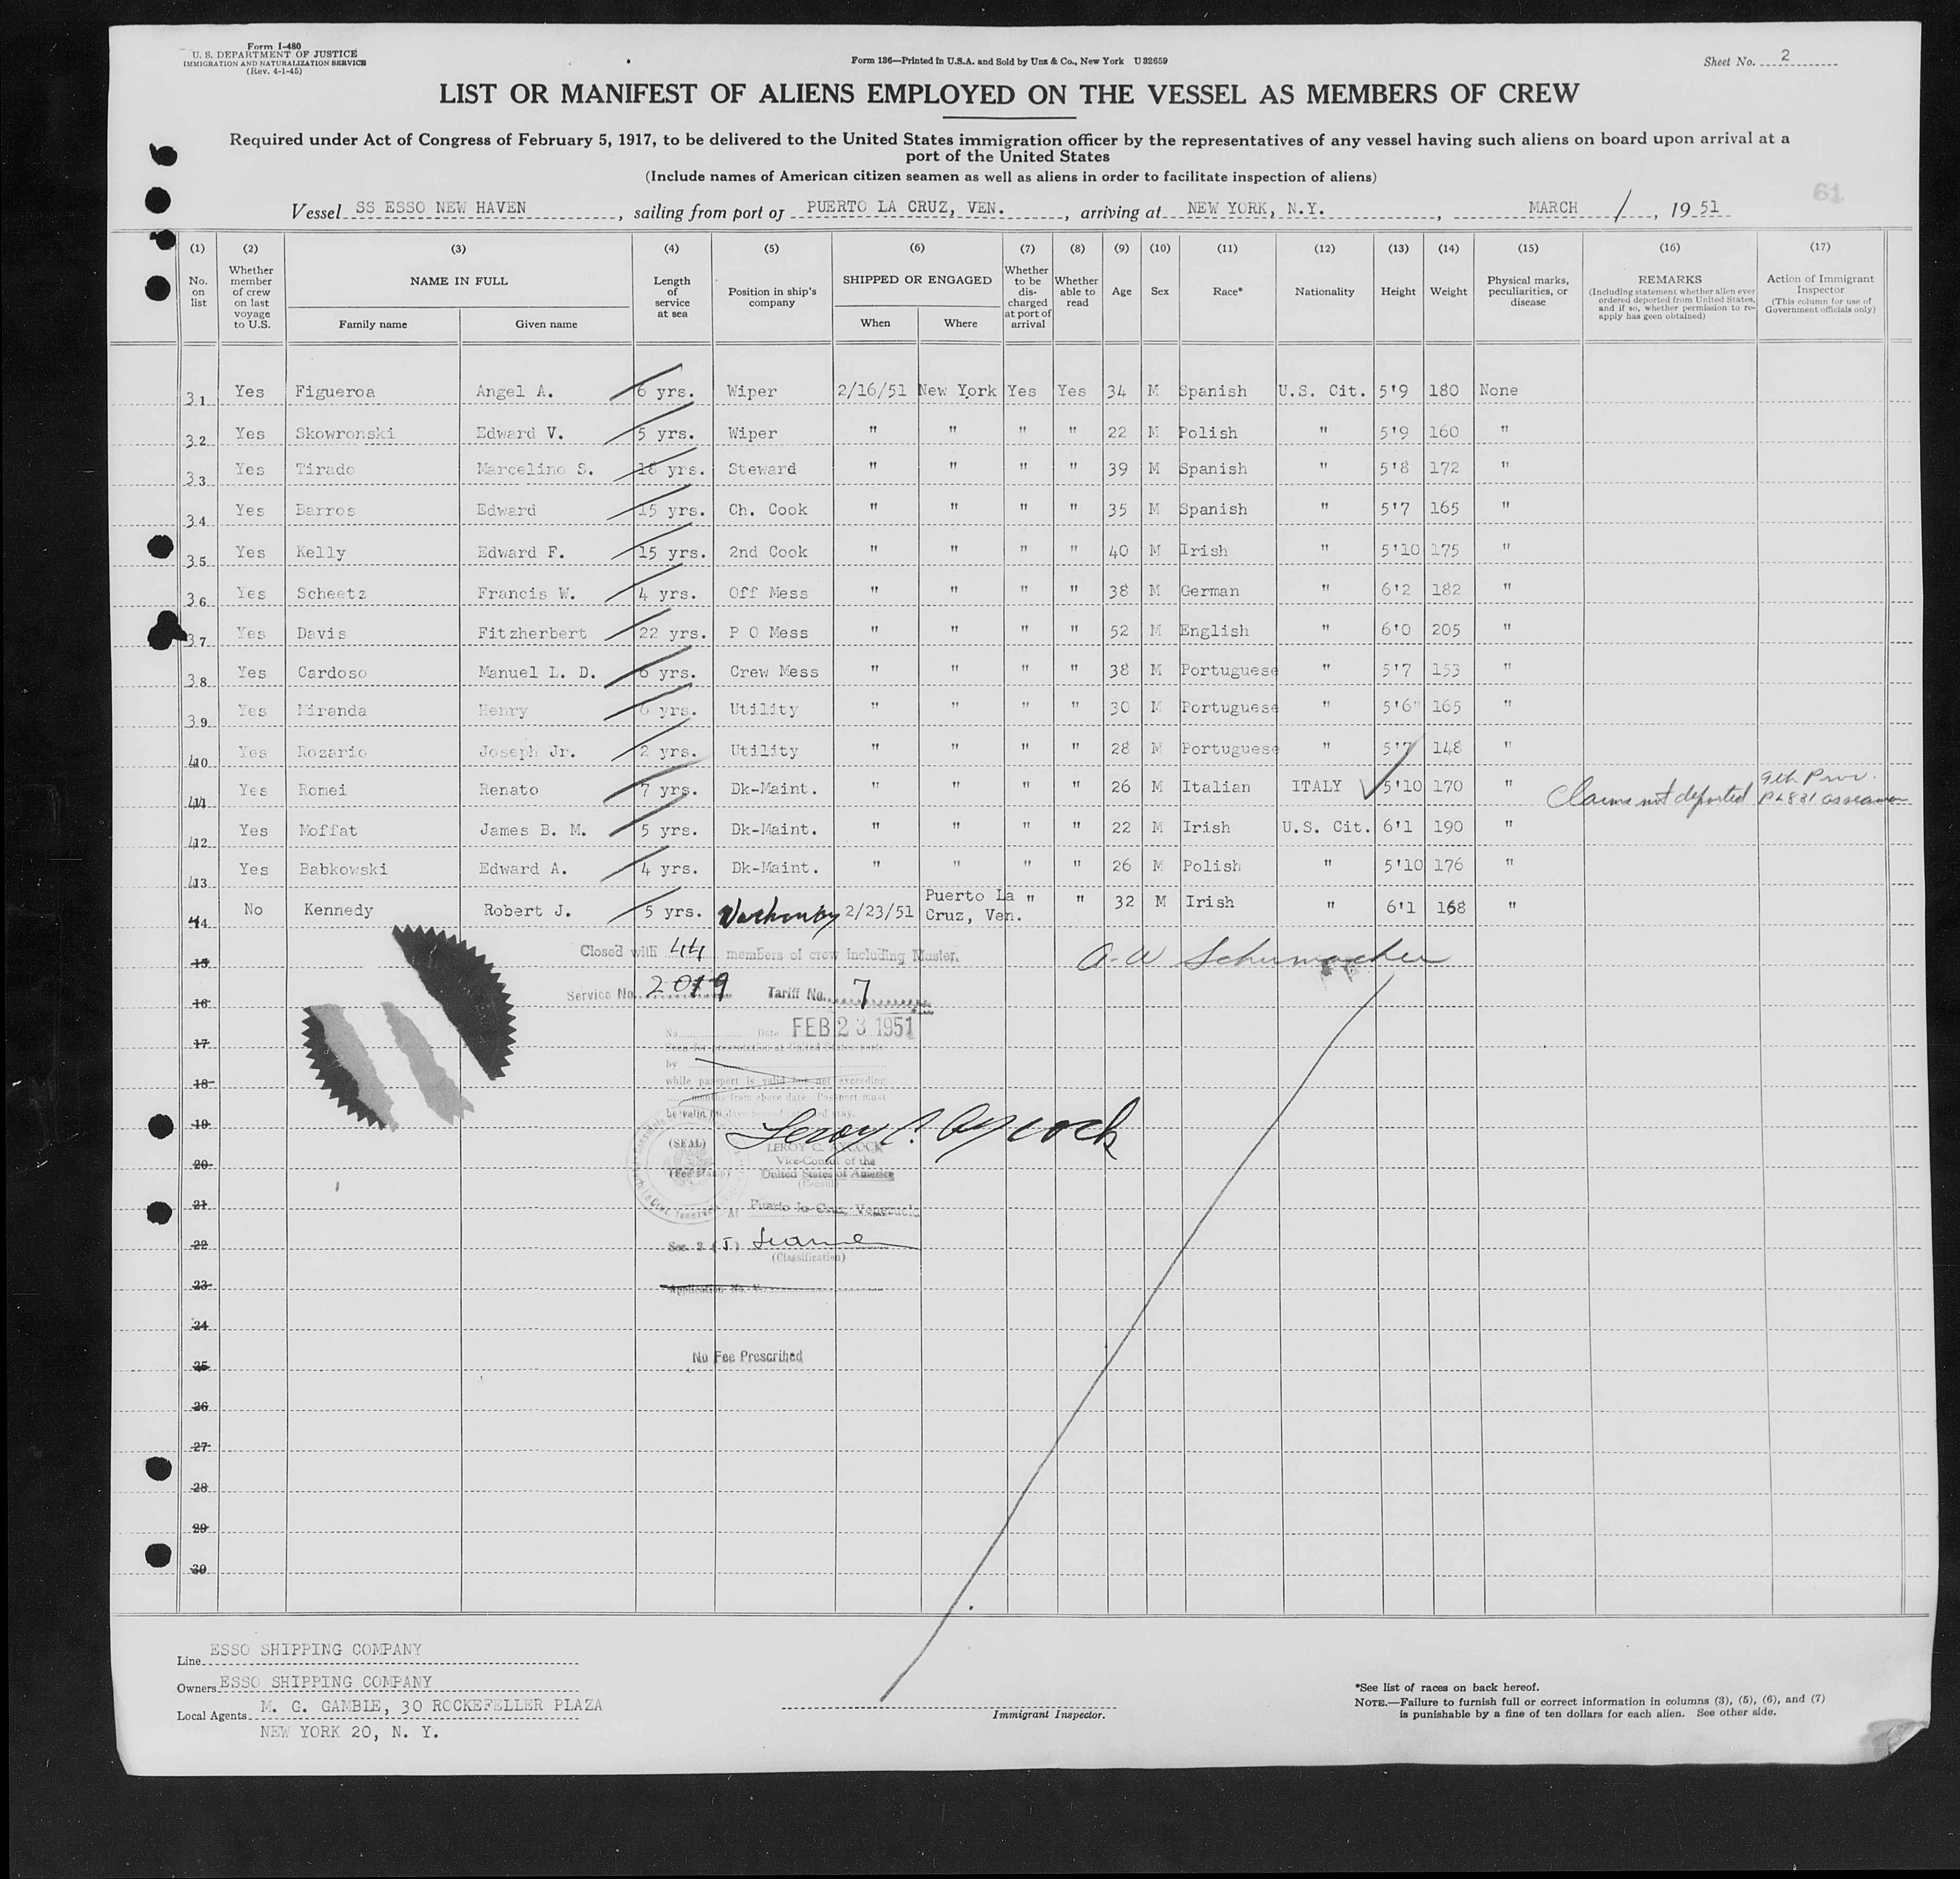 Form I-480
U. S. DEPARTMENT OF JUSTICE
IMMIGRATION AND NATURALIZATION SERVICE
(Rev. 4-1-45)
Form 136—Printed in U.S.A. and Sold by Unz & Co., New York U 32659
Sheet No. 2
LIST OR MANIFEST OF ALIENS EMPLOYED ON THE VESSEL AS MEMBERS OF CREW
Required under Act of Congress of February 5, 1917, to be delivered to the United States immigration officer by the representatives of any vessel having such aliens on board upon arrival at a
port of the United States
(Include names of American citizen seamen as well as aliens in order to facilitate inspection of aliens)
61
Vessel SS ESSO NEW HAVEN, sailing from port of PUERTO LA CRUZ, VEN., arriving at NEW YORK, N.Y., MARCH 1, 19 51
(1) (2) (3) (4) (5) (6) (7) (8) (9) (10) (11) (12) (13) (14) (15) (16) (17)
No. on list
Whether member of crew on last voyage to U.S.
NAME IN FULL
Family name
Given name
Length of service at sea
Position in ship's company
SHIPPED OR ENGAGED
When
Where
Whether to be discharged at port of arrival
Whether able to read
Age
Sex
Race*
Nationality
Height
Weight
Physical marks, peculiarities, or disease
REMARKS
(Including statement whether alien ever ordered deported from United States, and if so, whether permission to re-apply has geen obtained)
Action of Immigrant Inspector
(This column for use of Government officials only)
31 Yes Figueroa Angel A. 6 yrs. Wiper 2/16/51 New York Yes Yes 34 M Spanish U.S. Cit. 5'9 180 None
32 Yes Skowronski Edward V. 5 yrs. Wiper " " " " 22 M Polish " 5'9 160 "
33 Yes Tirado Marcelino S. 18 yrs. Steward " " " " 39 M Spanish " 5'8 172 "
34 Yes Barros Edward 15 yrs. Ch. Cook " " " " 35 M Spanish " 5'7 165 "
35 Yes Kelly Edward F. 15 yrs. 2nd Cook " " " " 40 M Irish " 5'10 175 "
36 Yes Scheetz Francis W. 4 yrs. Off Mess " " " " 38 M German " 6'2 182 "
37 Yes Davis Fitzherbert 22 yrs. P O Mess " " " " 52 M English " 6'0 205 "
38 Yes Cardoso Manuel L. D. 6 yrs. Crew Mess " " " " 38 M Portuguese " 5'7 153 "
39 Yes Miranda Henry 6 yrs. Utility " " " " 30 M Portuguese " 5'6" 165 "
40 Yes Rozario Joseph Jr. 2 yrs. Utility " " " " 28 M Portuguese " 5'7 148 "
41 Yes Romei Renato 7 yrs. Dk-Maint. " " " " 26 M Italian ITALY 5'10 170 " Claims not deported 9th Prov. PL831 as seaman
42 Yes Moffat James B. M. 5 yrs. Dk-Maint. " " " " 22 M Irish U.S. Cit. 6'1 190 "
43 Yes Babkowski Edward A. 4 yrs. Dk-Maint. " " " " 26 M Polish " 5'10 176 "
44 No Kennedy Robert J. 5 yrs. Workaway 2/23/51 Puerto La Cruz, Ven. " " 32 M Irish " 6'1 168 "
15 Closed with 44 members of crew including Master.
A. W Schumacher
16 Service No. 2019 Tariff No. 7
No. Date FEB 23 1951
17 Seen for presentation at United States ports
by
18 while passport is valid but not exceeding
months from above date. Passport must
19 be valid 60 days beyond intended stay.
Leroy C. Aycock
(SEAL) LEROY C. AYCOCK
20 Vice-Consul of the
(Fee stamp) United States of America
(Consul)
21 At Puerto la Cruz, Venezuela
22 Sec. 3 (5) Seamen
(Classification)
23 Application No. V
24
25 No Fee Prescribed
26
27
28
29
30
Line ESSO SHIPPING COMPANY
Owners ESSO SHIPPING COMPANY
Local Agents M. G. GAMBLE, 30 ROCKEFELLER PLAZA
NEW YORK 20, N. Y.
Immigrant Inspector.
*See list of races on back hereof.
NOTE.—Failure to furnish full or correct information in columns (3), (5), (6), and (7)
is punishable by a fine of ten dollars for each alien. See other side.